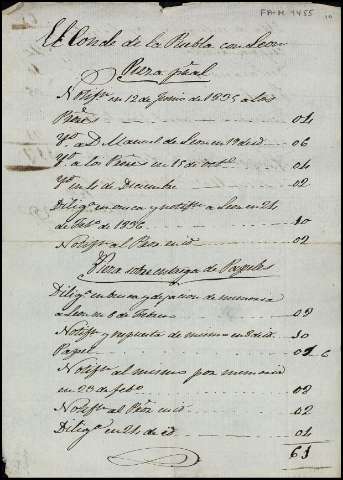 FA-M 1455
El Conde de la Puebla con Leon
Pieza pral
Notifon en 12 de Junio de 1835 a los
Pres 04
Yd. a D. Manuel de Leon en 19 de id 06
Yd. a los Pres en 15 de octe 04
Yd en 4 de Diciembre 02
Diliga en busca y notifon a Leon en 24
de Febo de 1836 10
Notifon al Por en id 02
Pieza sobre entrega de Papeles
Diliga en busca y dejacion de memoria
a Leon en 8 de Febrero 08
Notifon y respuesta de mismo en 9 id. 10
Papel
Notifon al mismo por memoria
en 23 de febo 08
Notifon al Por en id 02
Diliga en 24 de id 04
61